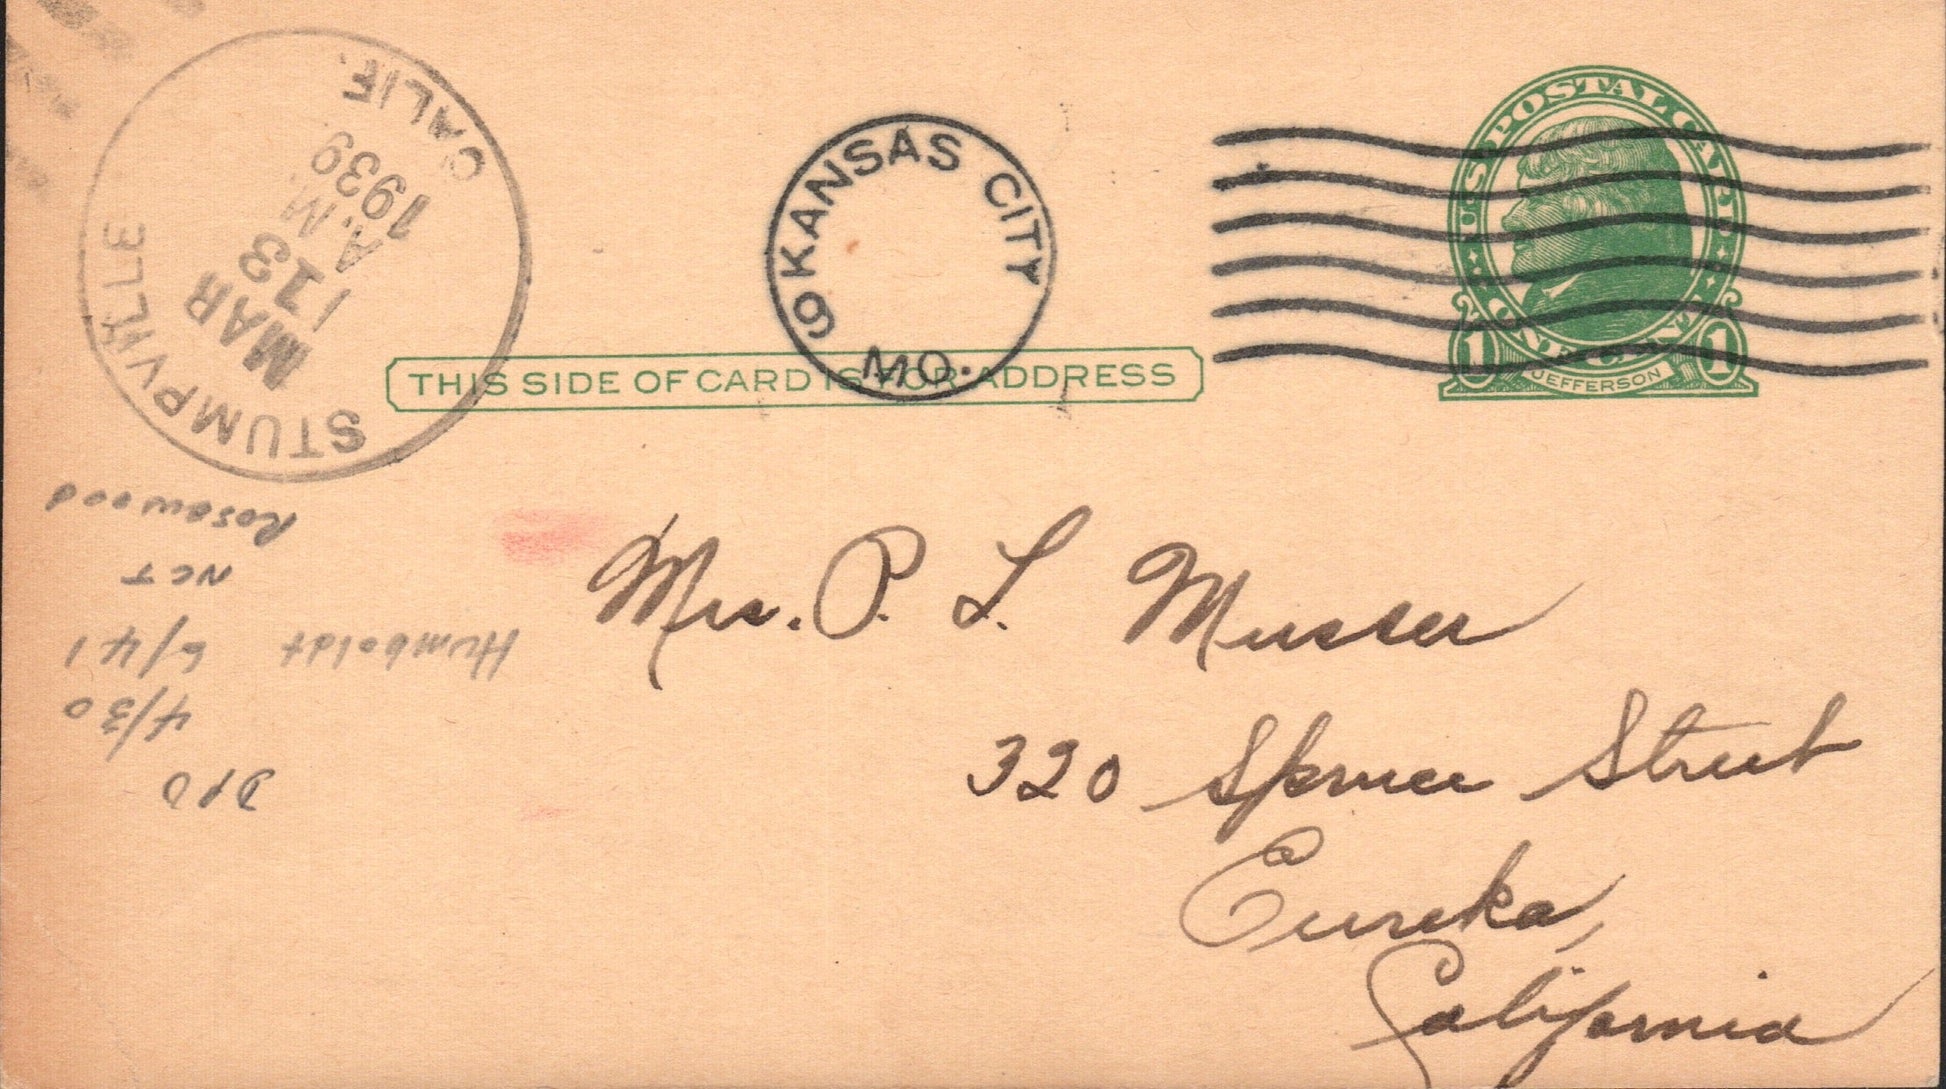 STUMPVILLE CALIF.
MAR
13
A.M.
1939
KANSAS CITY 9
MO.
U.S. POSTAL CARD
ONE CENT
1 JEFFERSON 1
THIS SIDE OF CARD IS FOR ADDRESS
Mrs. P. L. Musser
320 Spruce Street
Eureka,
California
DPO
4/30
6/41 Humboldt
NCT
Rosewood